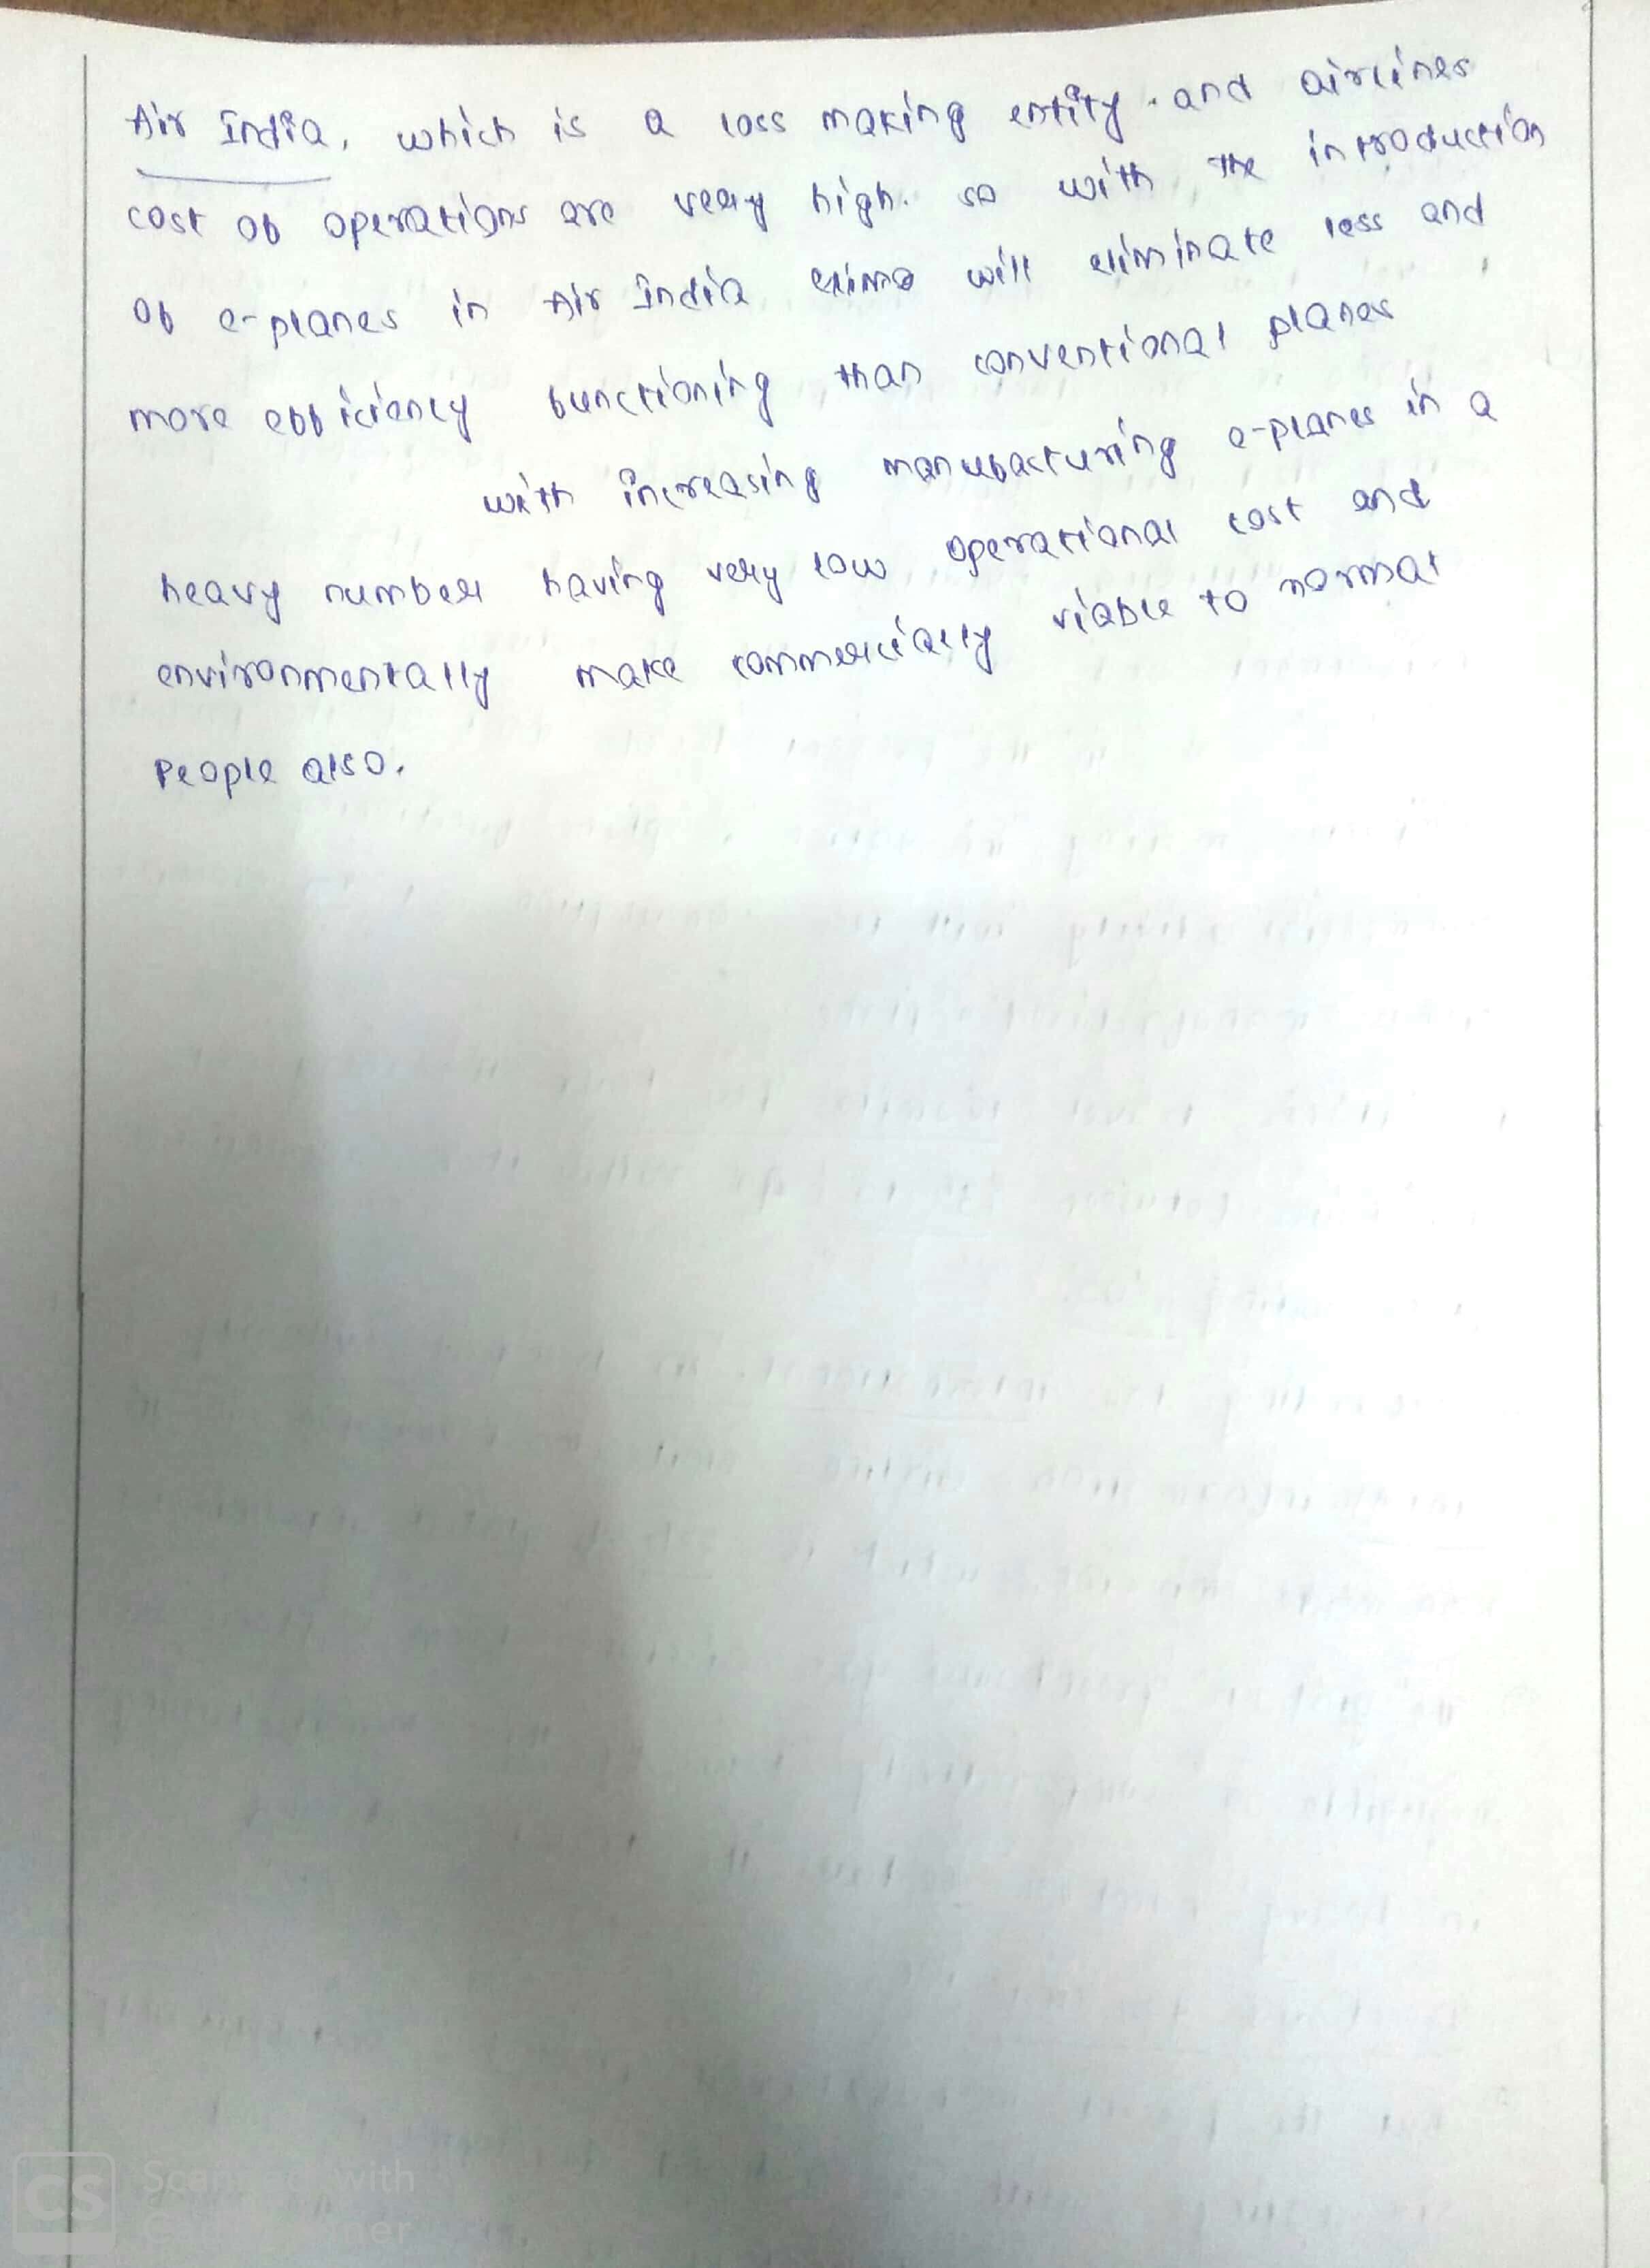 Air India, which is a loss making entity. and airlines
cost of operations are very high. so with the introduction
of e-planes in Air India will eliminate less and
more efficiency functioning than conventional planes
with increasing manufacturing e-planes in a
heavy number having very low operational cost and
environmentally make commercially viable to normal
people also.
CS
Scanned with
CamScanner